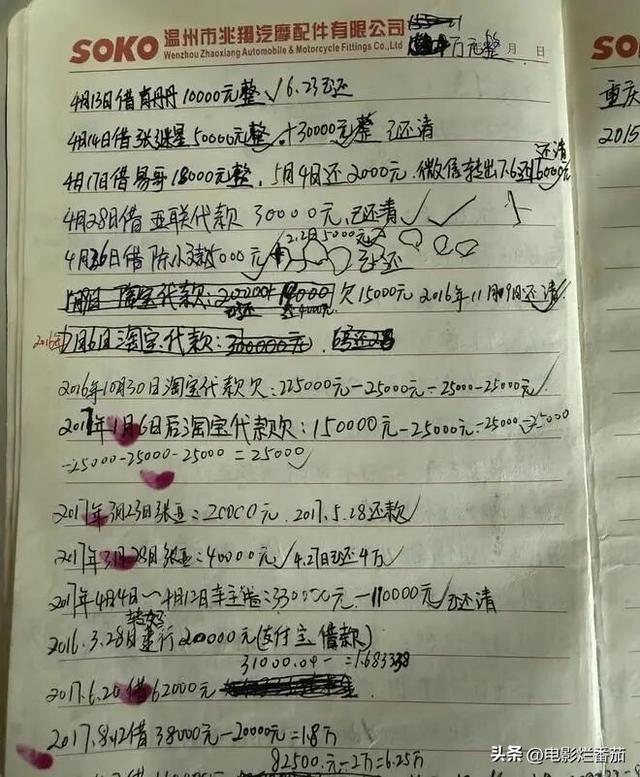 SOKO 温州市兆翔汽摩配件有限公司
Wenzhou Zhaoxiang Automobile & Motorcycle Fittings Co.,Ltd
万元整 月 日
4月13日借肖丹丹10000元整√ 6.23已还
4月14日借张继星50000元整√+30000元整 已还清
还清
4月17日借易哥18000元整,5月4日还2000元.微信转出 16000元
4月28日借亚联代款30000元,已还清√ √
2.2日5000元
4月 借陈小 5000元√ 已还
淘宝代款: 欠15000元 2016年11月09日还清√
2016年7月6日淘宝代款:300000元.
2016年10月30日淘宝代款欠:225000元-25000元-25000-25000元√
2017年1月6日后淘宝代款欠:150000元-25000元-25000-25000
-25000-25000-25000=25000√
2017年3月23日张亚:20000元.2017.5.28还款√
2017年3月28日张亚:40000元√4.27日已还4万√
2017年4月4日~4月12日车主 :330000元-110000元√已还清
2016.3.28日建行200000元(支付宝借款)
2017.6.20借62000元
2017.8.12借38000元-20000元=1.8万
82500元-2万=6.25万
SO
重庆
2015
头条 @电影烂番茄